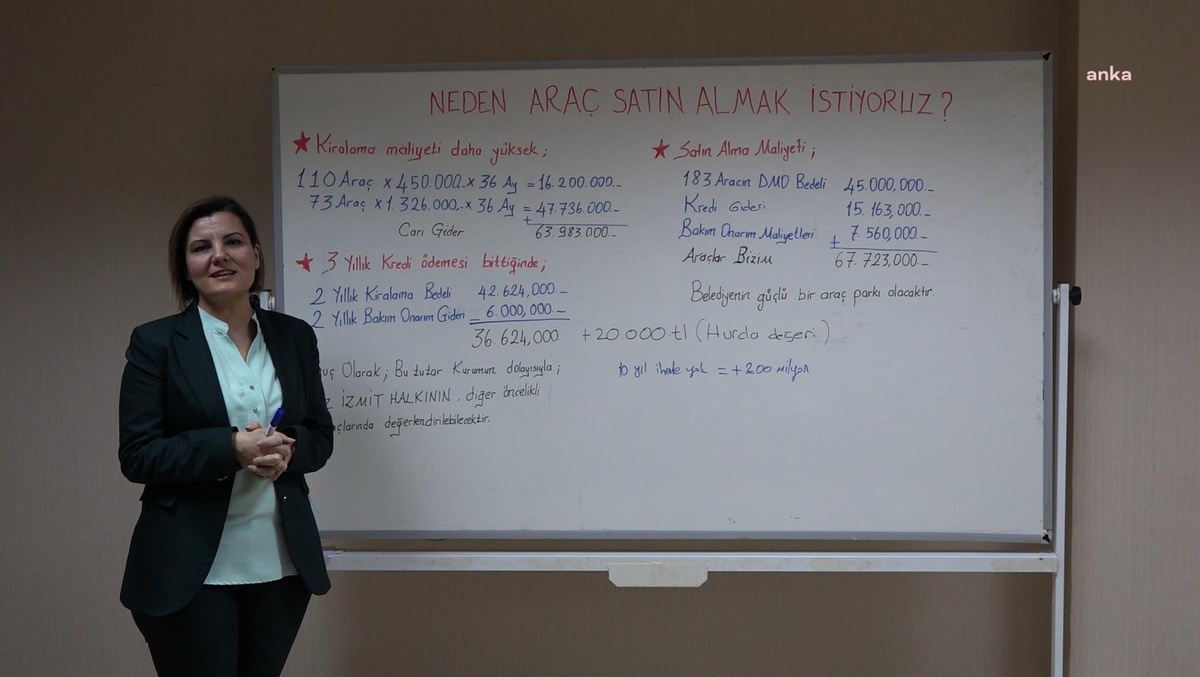 anka
NEDEN ARAÇ SATIN ALMAK İSTİYORUZ?
★ Kiralama maliyeti daha yüksek;
110 Araç x 450.000.- x 36 Ay = 16.200.000.-
73 Araç x 1.326.000.- x 36 Ay = 47.736.000.-
+
Cari Gider 63.983.000.-
★ 3 Yıllık Kredi ödemesi bittiğinde;
2 Yıllık Kiralama Bedeli 42.624,000.-
2 Yıllık Bakım Onarım Gideri - 6.000,000.-
36.624,000 +20.000 tl (Hurda değeri)
uç Olarak; Bu tutar Kurumun dolayısıyla;
İZMİT HALKININ. diğer öncelikli
çlarında değerlendirilebilecektir.
★ Satın Alma Maliyeti;
183 Aracın DMO Bedeli 45.000,000.-
Kredi Gideri 15.163,000.-
Bakım Onarım Maliyetleri + 7.560,000.-
Araçlar Bizim 67.723,000.-
Belediyenin güçlü bir araç parkı olacaktır.
10 yıl ihale yok = +200 milyon